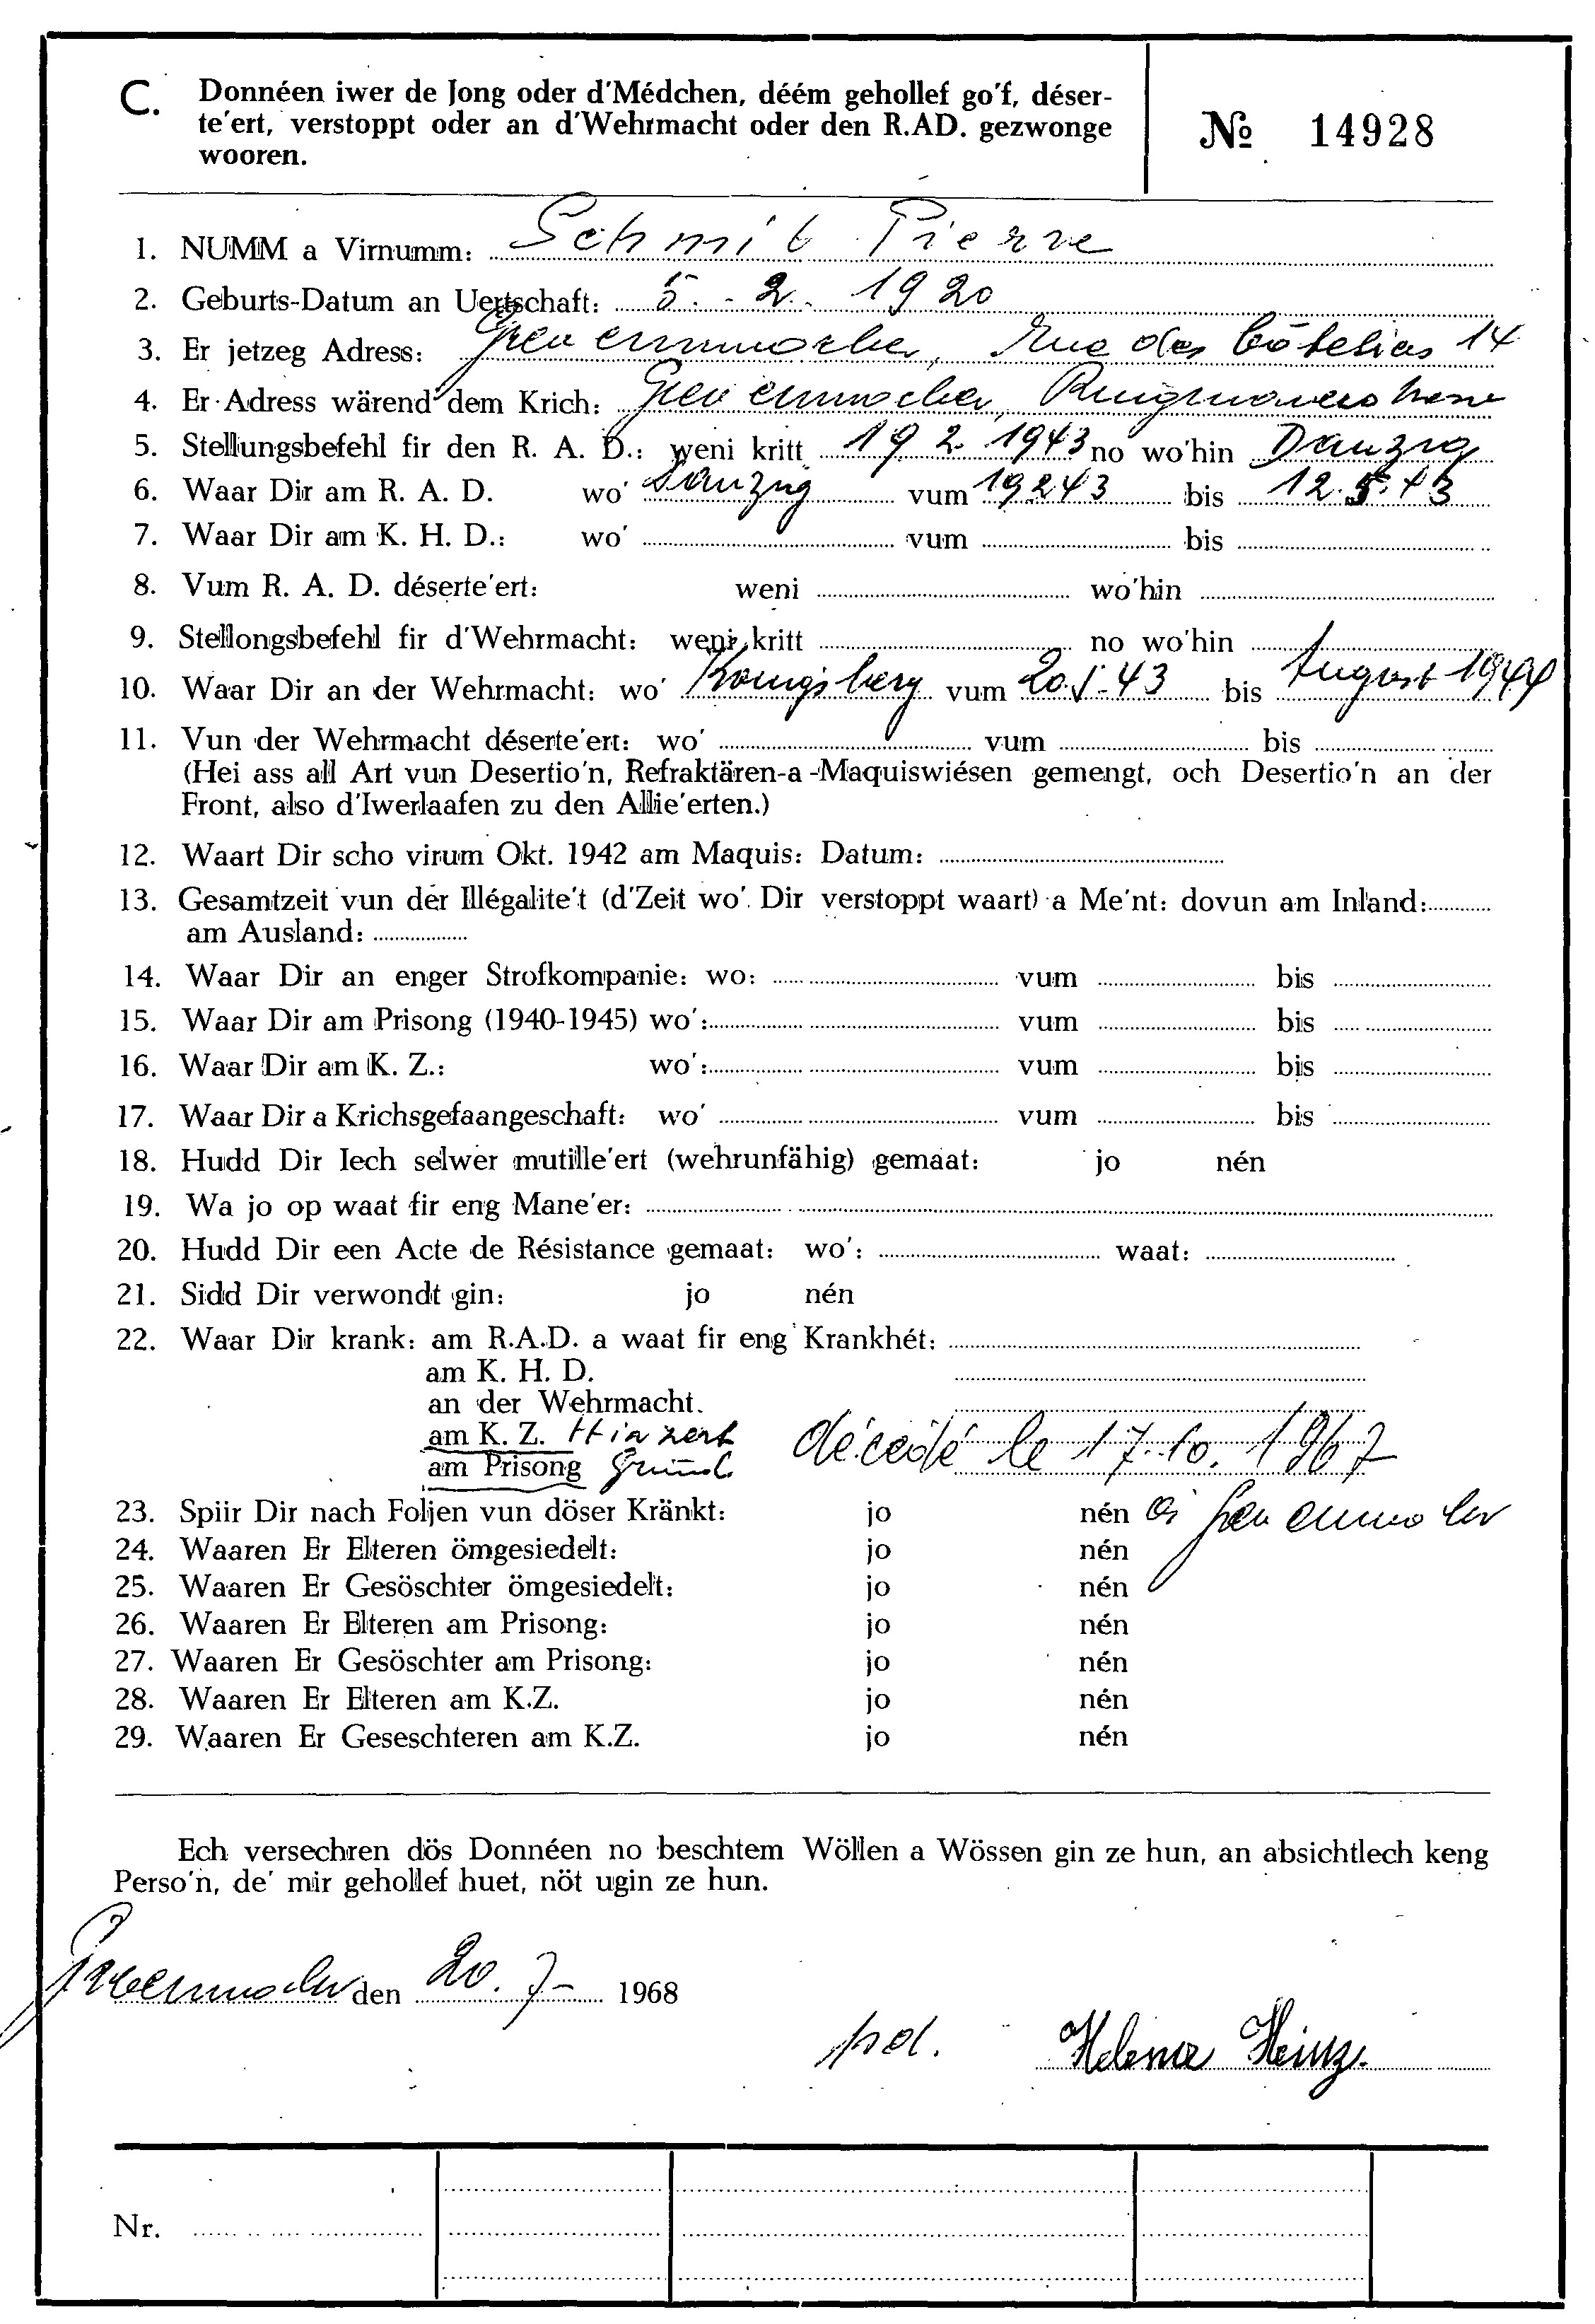 C. Donnéen iwer de Jong oder d'Médchen, déém gehollef go'f, déser-
te'ert, verstoppt oder an d'Wehrmacht oder den R.AD. gezwonge
wooren.
№ 14928
1. NUMM a Virnumm: Schmit Pierre
2. Geburts-Datum an Uertschaft: 5. - 2. - 1920
3. Er jetzeg Adress: Grevenmacher, Rue des 14
4. Er Adress wärend dem Krich: Grevenmacher, Ringmauerstrasse
5. Stellungsbefehl fir den R. A. D.: weni kritt 19 2 1943 no wo'hin Danzig
6. Waar Dir am R. A. D. wo' Danzig vum 19 2 43 bis 12. 5. 43
7. Waar Dir am K. H. D.: wo' vum bis
8. Vum R. A. D. déserte'ert: weni wo'hin
9. Stellongsbefehl fir d'Wehrmacht: weni kritt no wo'hin
10. Waar Dir an der Wehrmacht: wo' Königsberg vum bis August 1944
11. Vun der Wehrmacht déserte'ert: wo' vum bis
(Hei ass all Art vun Desertio'n, Refraktären-a-Maquiswiésen gemengt, och Desertio'n an der
Front, also d'Iwerlaafen zu den Allie'erten.)
12. Waart Dir scho virum Okt. 1942 am Maquis: Datum:
13. Gesamtzeit vun der Illégalite't (d'Zeit wo' Dir verstoppt waart) a Me'nt: dovun am Inland:
am Ausland:
14. Waar Dir an enger Strofkompanie: wo: vum bis
15. Waar Dir am Prisong (1940-1945) wo': vum bis
16. Waar Dir am K. Z.: wo': vum bis
17. Waar Dir a Krichsgefaangeschaft: wo' vum bis
18. Hudd Dir Iech selwer mutille'ert (wehrunfähig) gemaat: jo nén
19. Wa jo op waat fir eng Mane'er:
20. Hudd Dir een Acte de Résistance gemaat: wo': waat:
21. Sidd Dir verwondt gin: jo nén
22. Waar Dir krank: am R.A.D. a waat fir eng Krankhét:
am K. H. D.
an der Wehrmacht.
am K. Z. Hinzert décédé le 17. 10. 1967
am Prisong Grund
23. Spiir Dir nach Foljen vun döser Kränkt: jo nén à Grevenmacher
24. Waaren Er Elteren ömgesiedelt: jo nén
25. Waaren Er Gesöschter ömgesiedelt: jo nén
26. Waaren Er Elteren am Prisong: jo nén
27. Waaren Er Gesöschter am Prisong: jo nén
28. Waaren Er Elteren am K.Z. jo nén
29. Waaren Er Geseschteren am K.Z. jo nén
Ech versechren dös Donnéen no beschtem Wöllen a Wössen gin ze hun, an absichtlech keng
Perso'n, de' mir gehollef huet, nöt ugin ze hun.
Grevenmacher den 20. 7- 1968
Helena Heinz.
Nr.